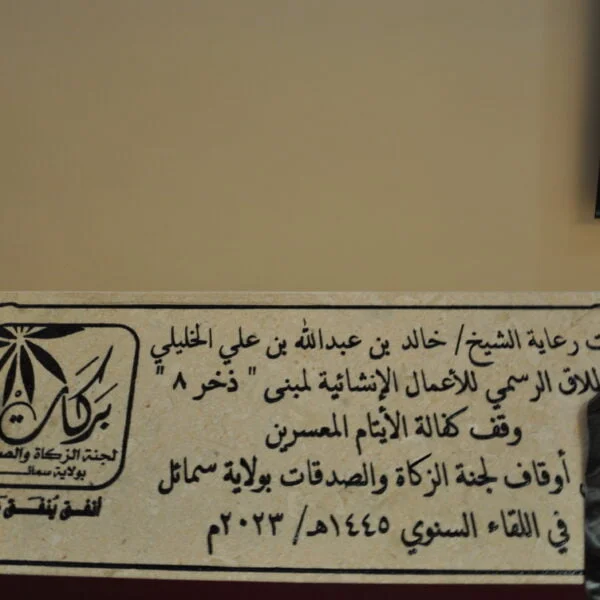 ت رعاية الشيخ/ خالد بن عبدالله بن علي الخليلي
طلاق الرسمي للأعمال الإنشائية لمبنى " ذخر ٨ "
وقف كفالة الأيتام المعسرين
أوقاف لجنة الزكاة والصدقات بولاية سمائل
في اللقاء السنوي ١٤٤٥هـ/ ٢٠٢٣م
بركات
لجنة الزكاة والص
بولاية سمائل
أنفق يُنفق